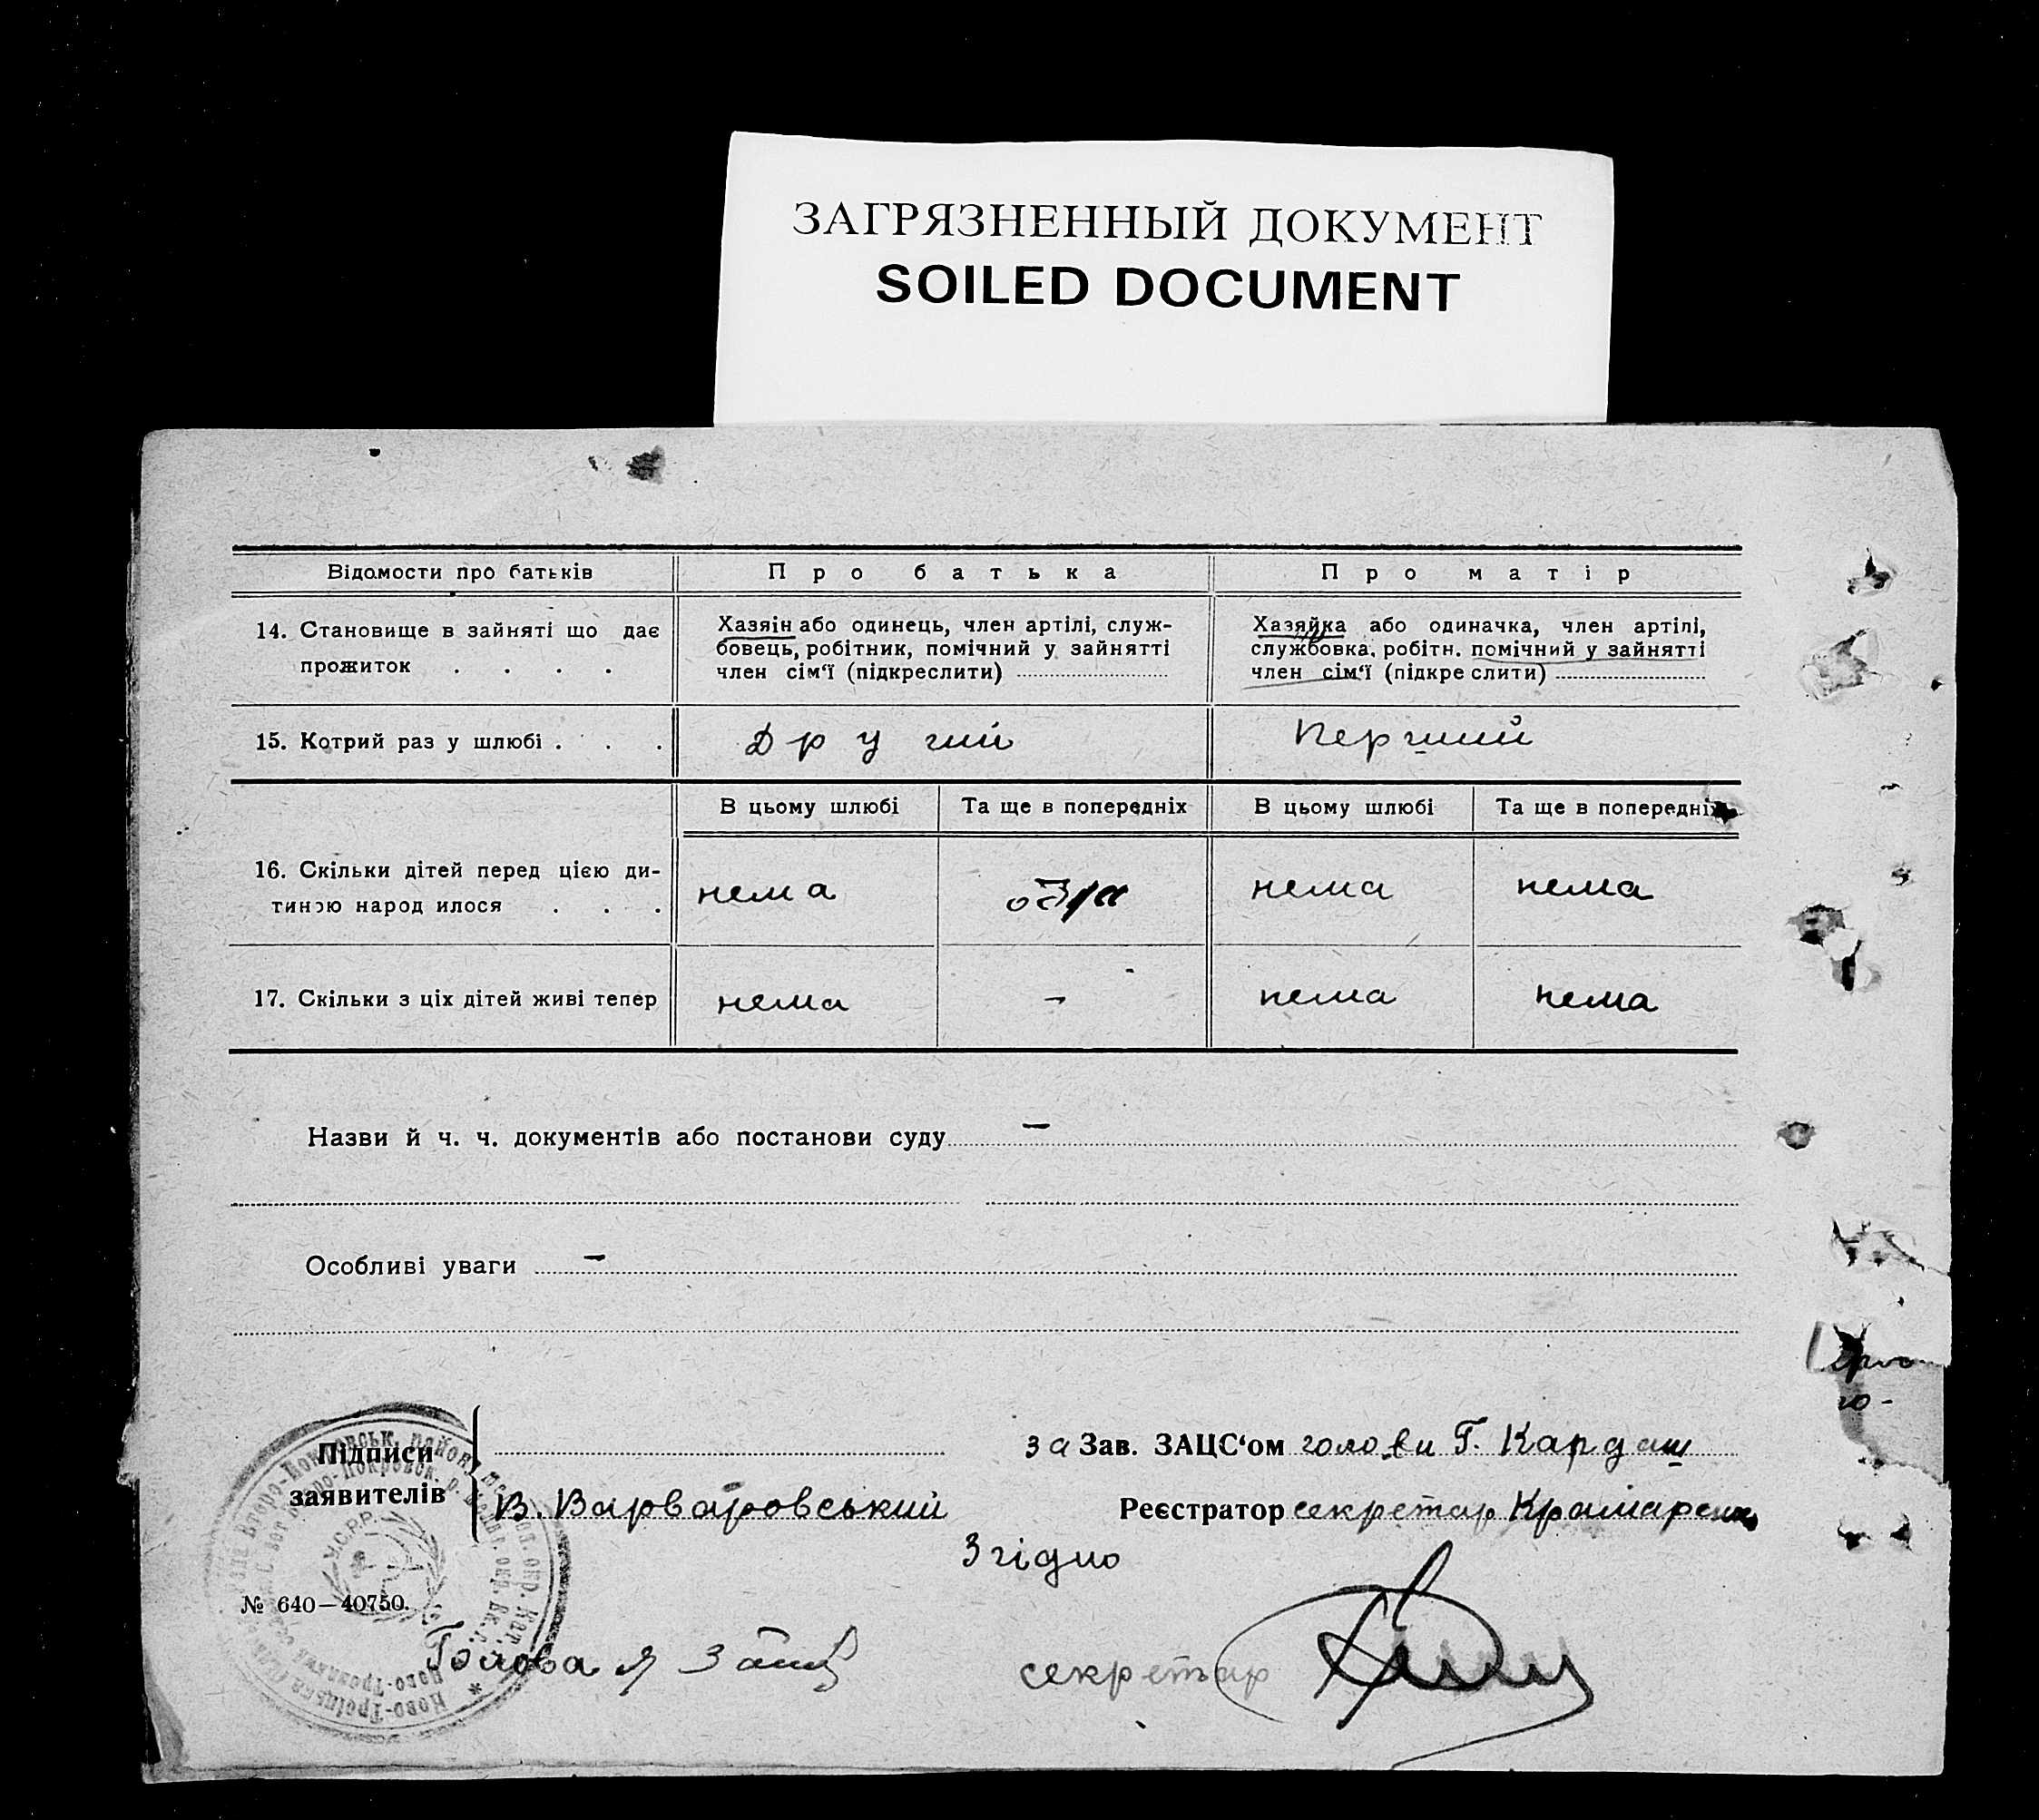 ЗАГРЯЗНЕННЫЙ ДОКУМЕНТ
SOILED DOCUMENT
Відомости про батьків
Про батька
Про матір
14. Становище в зайняті що дає
прожиток . . . .
Хазяін або одинець, член артілі, служ-
бовець, робітник, помічний у зайнятті
член сім‘ї (підкреслити)
Хазяйка або одиначка, член артілі,
службовка, робітн. помічний у зайнятті
член сім‘ї (підкреслити)
15. Котрий раз у шлюбі . . .
Другий
Перший
В цьому шлюбі
Та ще в попередніх
В цьому шлюбі
Та ще в попередніх
16. Скільки дітей перед цією ди-
тиною народилося . . .
нема
нема
нема
17. Скільки з ціх дітей живі тепер
нема
–
нема
нема
Назви й ч. ч. документів або постанови суду –
Особливі уваги –
Підписи
заявителів
В. Варваровський
за Зав. ЗАЦС‘ом голови Г. Кардаш
Реєстратор секретар Крамаренк
Згідно
У.С.Р.Р.
№ 640—40750.
Голова
секретар